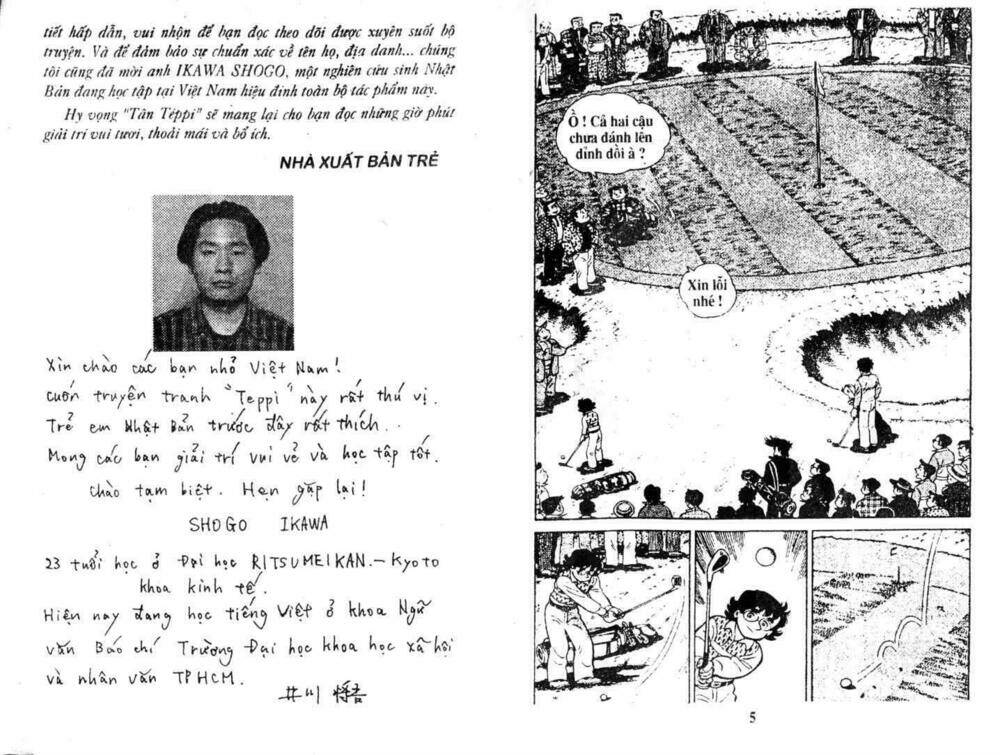 tiết hấp dẫn, vui nhộn để bạn đọc theo dõi được xuyên suốt bộ
truyện. Và để đảm bảo sự chuẩn xác về tên họ, địa danh... chúng
tôi cũng đã mời anh IKAWA SHOGO, một nghiên cứu sinh Nhật
Bản đang học tập tại Việt Nam hiệu đính toàn bộ tác phẩm này.
Hy vọng "Tân Téppi" sẽ mang lại cho bạn đọc những giờ phút
giải trí vui tươi, thoải mái và bổ ích.
NHÀ XUẤT BẢN TRẺ
Xin chào các bạn nhỏ Việt Nam!
Cuốn truyện tranh "Teppi" này rất thú vị.
Trẻ em Nhật Bản trước đây rất thích..
Mong các bạn giải trí vui vẻ và học tập tốt.
Chào tạm biệt. Hẹn gặp lại!
SHOGO IKAWA
23 tuổi học ở Đại học RITSUMEIKAN.-Kyoto
khoa kinh tế.
Hiện nay đang học tiếng Việt ở khoa Ngữ
văn Báo chí Trường Đại học khoa học xã hội
và nhân văn TPHCM.
井川 将吾
Ồ ! Cả hai cậu
chưa đánh lên
đỉnh đồi à ?
Xin lỗi
nhé !
5